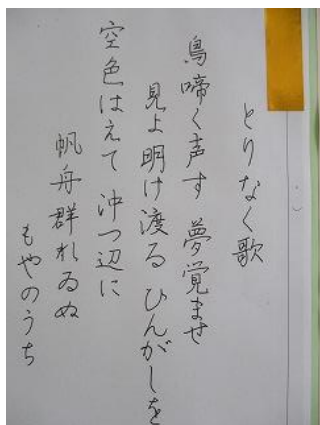 とりなく歌
鳥啼く声す 夢覚ませ
見よ明け渡る ひんがしを
空色はえて 沖つ辺に
帆舟群れゐぬ
もやのうち